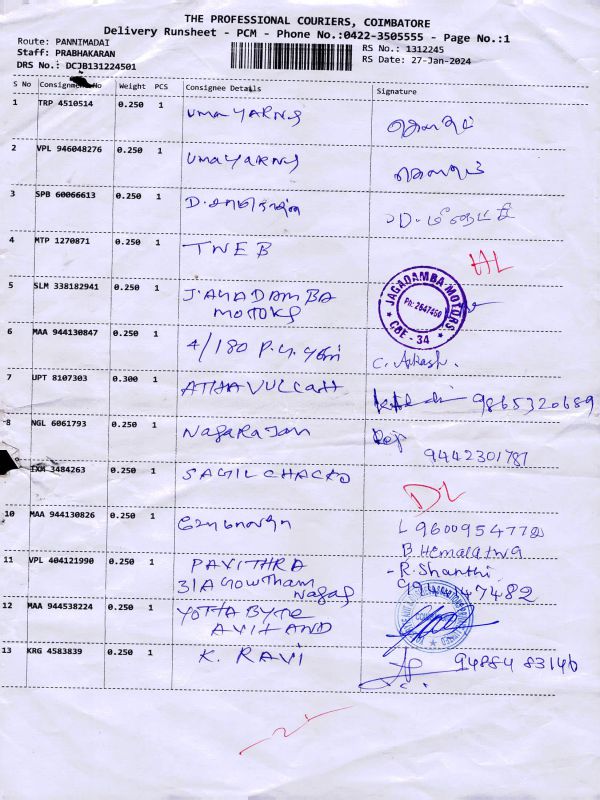 THE PROFESSIONAL COURIERS, COIMBATORE
Delivery Runsheet - PCM - Phone No.:0422-3505555 - Page No.:1
Route: PANNIMADAI
Staff: PRABHAKARAN
DRS No.: DCJB131224501
RS No.: 1312245
RS Date: 27-Jan-2024
S No Consignment No Weight PCS Consignee Details Signature
1 TRP 4510514 0.250 1 UMA YARNS
2 VPL 946048276 0.250 1 UMA YARNS
3 SPB 60066613 0.250 1
4 MTP 1270871 0.250 1 TNEB
5 SLM 338182941 0.250 1 JAGADAMBA
MOTORS
JAGADAMBA MOTORS
Ph: 2647450
CBE - 34
6 MAA 944130847 0.250 1 4/180 C. Akash.
7 UPT 8107303 0.300 1 ATHAVULLAH 9865320689
8 NGL 6061793 0.250 1 Nagarajan
9442301787
IXM 3484263 0.250 1 SAGIL CHACKO DL
10 MAA 944130826 0.250 1
B Hemalatha
11 VPL 404121990 0.250 1 PAVITHRA R. Shanthi
31A Gowtham
Nagar
12 MAA 944538224 0.250 1 YOTTA BYTE
13 KRG 4583839 0.250 1 K. RAVI 94884 83146